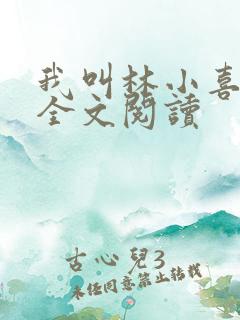 我叫林小喜
全文閱讀
古心兒3
未经同意禁止转载